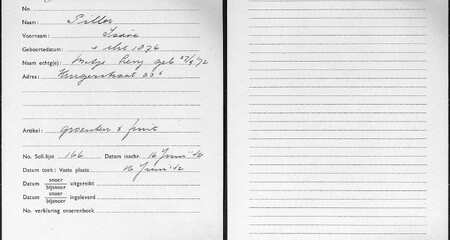 No.
Naam: Piller
Voornaam: Isaac
Geboortedatum: 1876
Naam echtg(e): Mietje Levy geb 27/4/72
Adres:
Artikel: groenten & fruit
No. Soll.lijst 166 Datum inschr. 16 Juni '42
Datum toek: Vaste plaats 16 Juni '42
Datum snoer bijsnoer uitgereikt
Datum snoer bijsnoer ingeleverd
No. verklaring snoerenboek